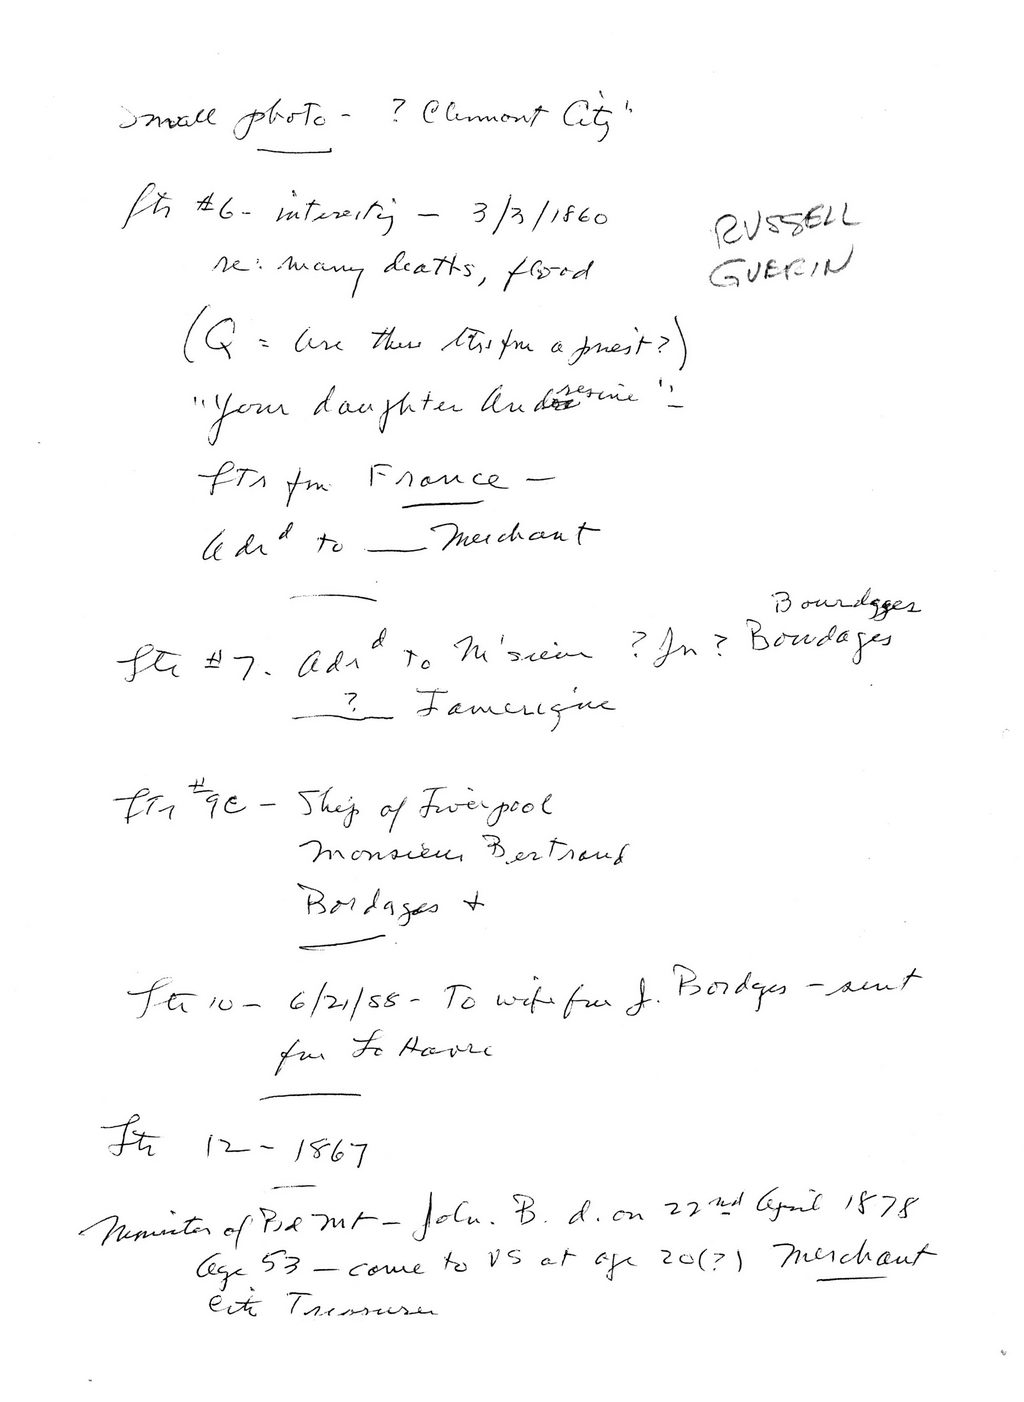 Small photo - ? Clermont City"
Ltr #6 - interesting - 3/3/1860
re: many deaths, flood
RUSSELL
GUERIN
(Q = are these ltrs fm a priest?)
"Your daughter
Ltrs fm France -
Adr'd to ___ Merchant
Bourdages
Ltr #7. Adr'd to M'sieur ? Jn ? Boudages
___?___
Ltr #9C - Ship of Liverpool
Monsieur Bertrand
Bordages +
Ltr 10 - 6/21/58 - To wife fm J. Bordges - sent
fm Le Havre
Ltr 12 - 1867
Minister of Bd Mt - John. B. d. on 22nd April 1878
Age 53 - come to US at age 20(?) Merchant
City Treasurer